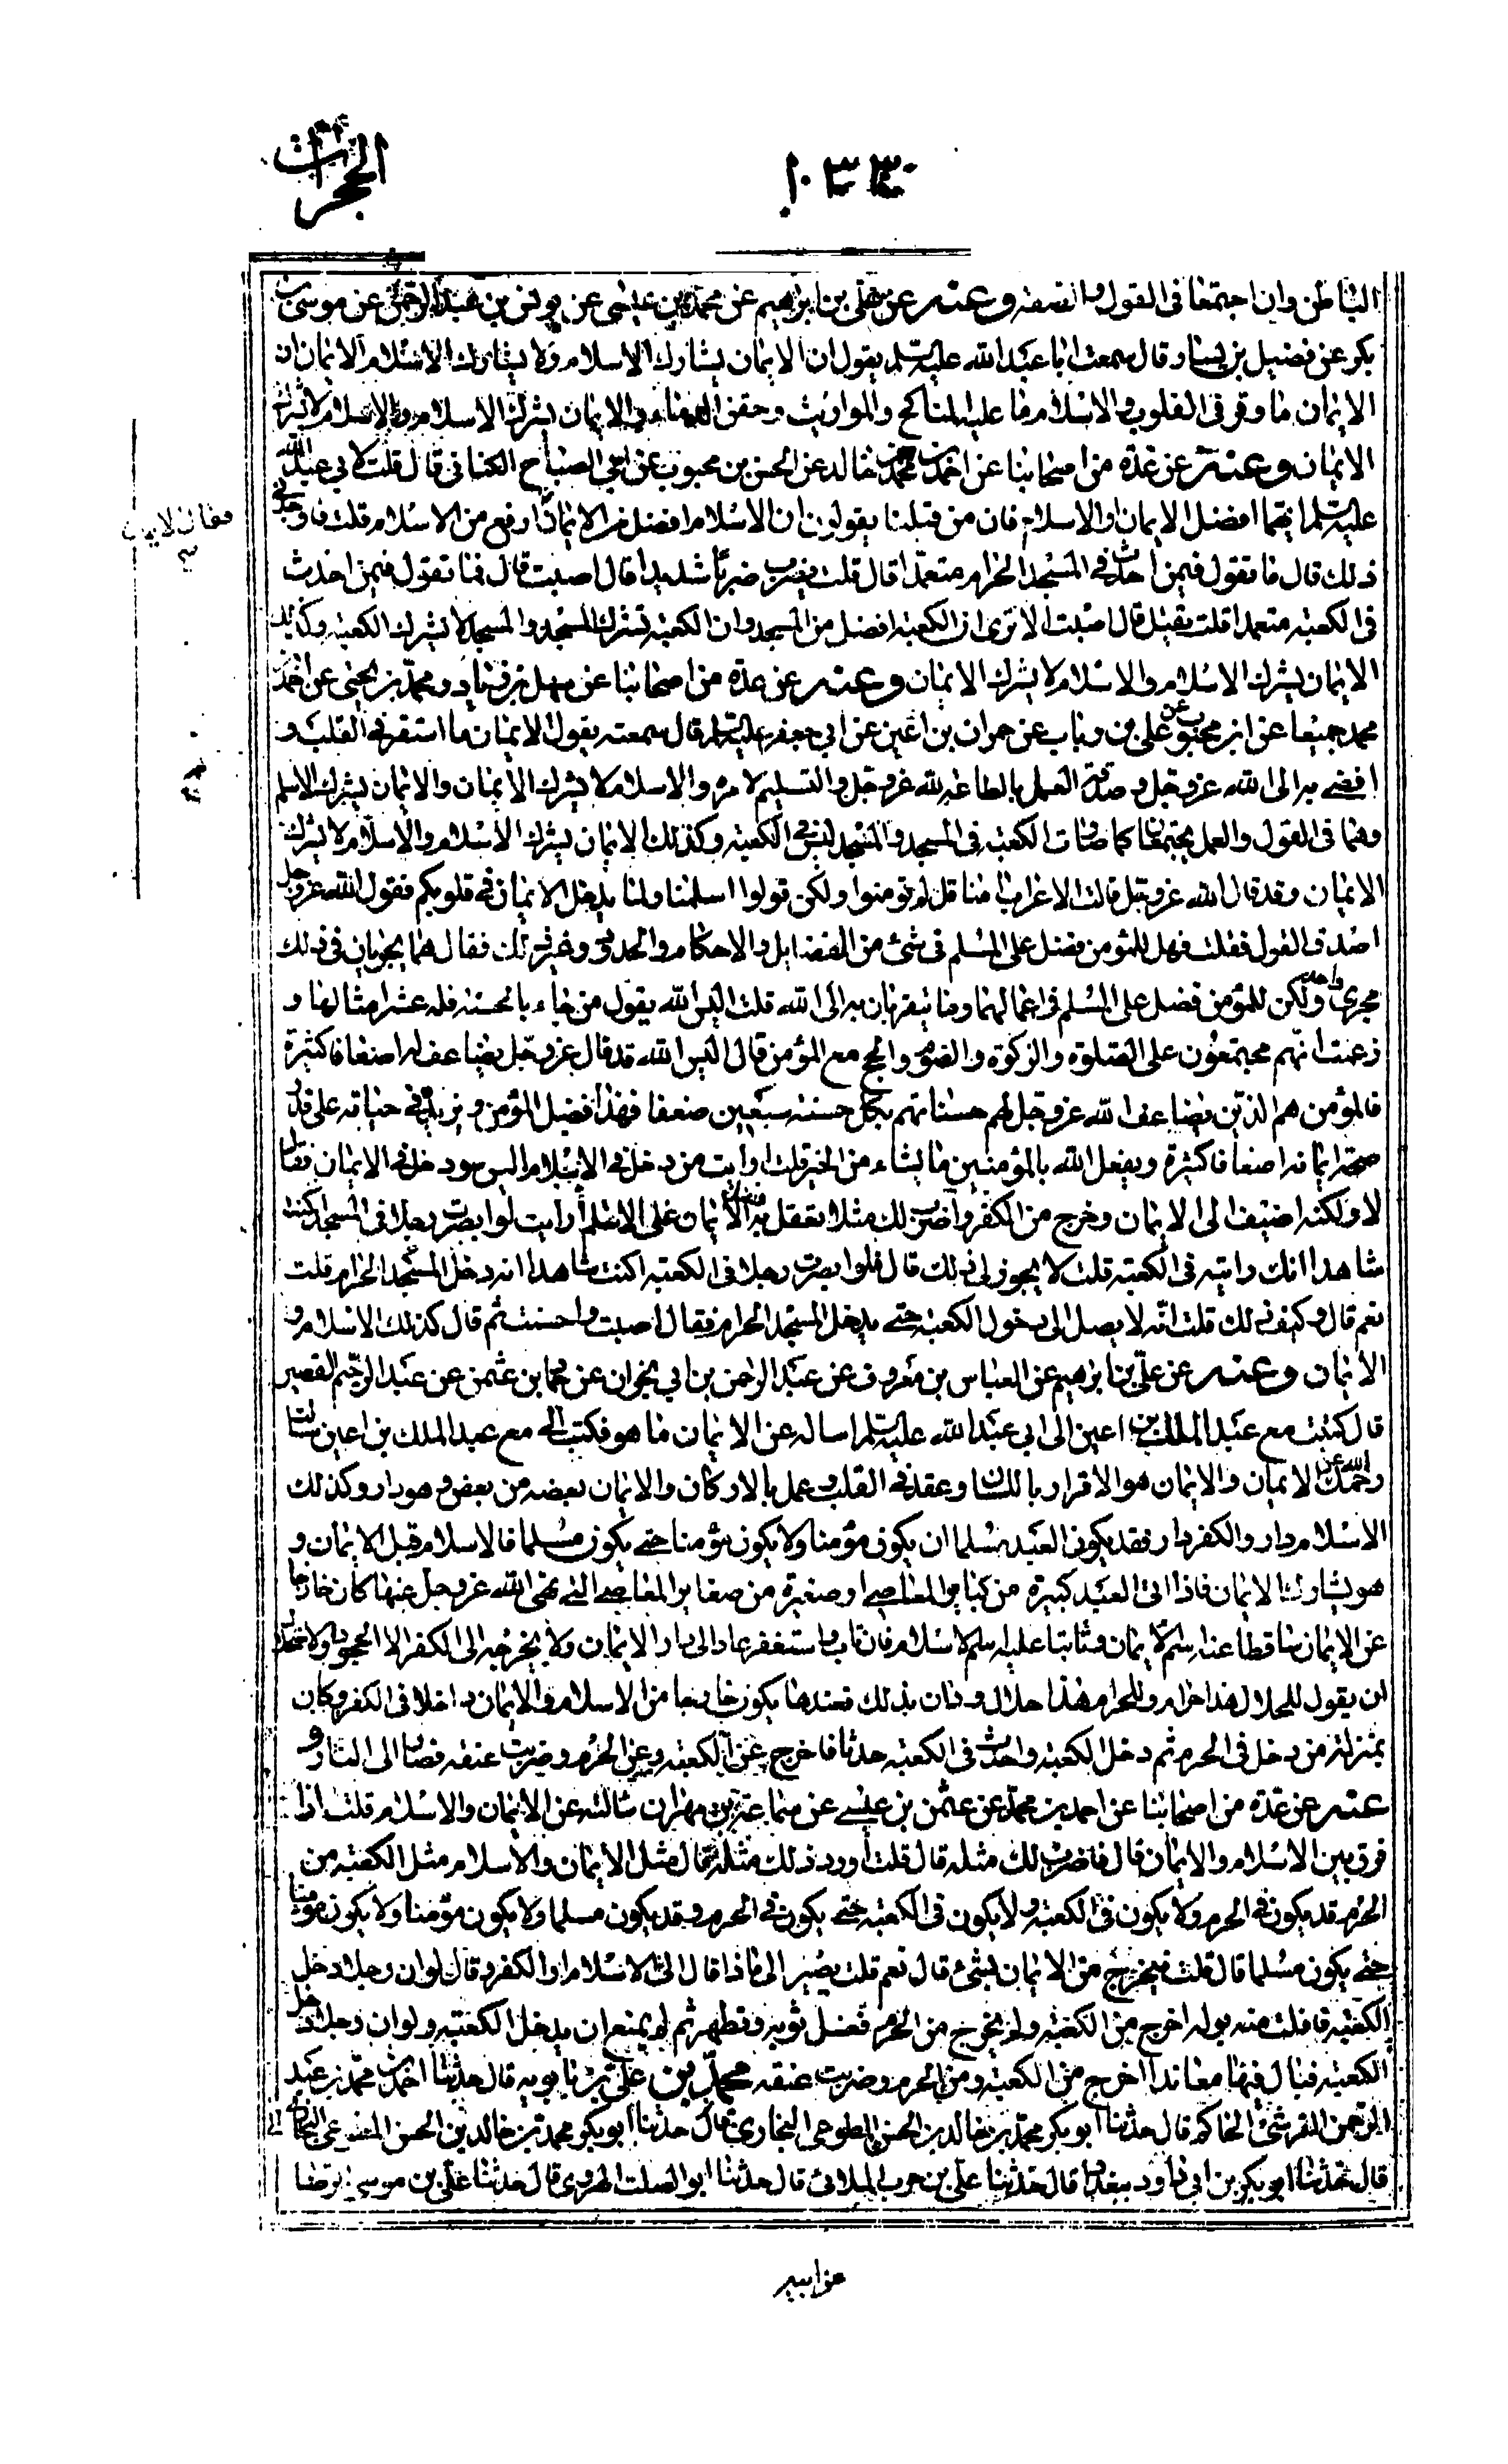 الحجرات
١٠٣٣
الباطن وان اجتمعا فى القول والصفة وعنه عن علي بن ابرهيم عن محمد بن عيسى عن يونس بن عبد الرحمن عن موسى بن
بكر عن فضيل بن يسار قال سمعت ابا عبد الله عليه السلم يقول ان الايمان يشارك الاسلام ولا يشاركه الاسلام الايمان ان
الايمان ما وقر فى القلوب والاسلام ما عليه المناكح والمواريث وحقن الدماء والايمان يشرك الاسلام والاسلام لا يشرك
الايمان وعنه عن عدة من اصحابنا عن احمد بن محمد بن خالد عن الحسن بن محبوب عن ابي الصباح الكناني قال قلت لابي عبد الله
عليه السلم ايهما افضل الايمان او الاسلام فان من قبلنا يقولون ان الاسلام افضل من الايمان قال الايمان ارفع من الاسلام قلت فاوجدني
ذلك قال ما تقول فيمن احدث في المسجد الحرام متعمدا قال قلت يضرب ضربا شديدا قال اصبت قال فما تقول فيمن احدث
فى الكعبة متعمدا قلت يقتل قال اصبت الا ترى ان الكعبة افضل من المسجد وان الكعبة تشرك المسجد والمسجد لا يشرك الكعبة وكذلك
الايمان يشرك الاسلام والاسلام لا يشرك الايمان وعنه عن عدة من اصحابنا عن سهل بن زياد ومحمد بن يحيى عن احمد بن
محمد جميعا عن ابن محبوب عن علي بن رئاب عن حمران بن اعين عن ابي جعفر عليه السلم قال سمعته يقول الايمان ما استقر في القلب و
افضى به الى الله عز وجل وصدقه العمل بالطاعة لله عز وجل والتسليم لامره والاسلام لا يشرك الايمان والايمان يشرك الاسلام
وهما فى القول والعمل يجتمعان كما صارت الكعبة فى المسجد والمسجد ليس فى الكعبة وكذلك الايمان يشرك الاسلام والاسلام لا يشرك
الايمان وقد قال الله عز وجل قالت الاعراب امنا قل لم تومنوا ولكن قولوا اسلمنا ولما يدخل الايمان في قلوبكم فقول الله عز وجل
اصدق القول فقلت فهل للمؤمن فضل على المسلم فى شئ من الفضايل والاحكام والحدود وغير ذلك فقال هما يجريان فى ذلك
مجرى واحد ولكن للمؤمن فضل على المسلم فى اعمالهما وما يتقربان به الى الله قلت اليس الله يقول من جاء بالحسنة فله عشر امثالها و
زعمت انهم مجتمعون على الصلوة والزكوة والصوم والحج مع المؤمن قال اليس الله قد قال عز وجل يضاعفه له اضعافا كثيرة
فالمؤمن هم الذين يضاعف الله عز وجل لهم حسناتهم بكل حسنة سبعين ضعفا فهذا فضل المؤمن ويزيد في حياته على قدر
صحة ايمانه اضعافا كثيرة ويفعل الله بالمؤمنين ما يشاء من الخير قلت ارايت من دخل في الاسلام اليس هو دخل في الايمان فقال
لا ولكنه اضيف الى الايمان وخرج من الكفر واضرب لك مثلا تعقل به فضل الايمان على الاسلام أرأيت لو ابصرت رجلا فى المسجد اكنت
شاهدا انك رايته فى الكعبة قلت لا يجوز لى ذلك قال فلو ابصرت رجلا فى الكعبة اكنت شاهدا انه دخل المسجد الحرام قلت
نعم قال وكيف ذلك قلت انه لا يصل الى دخول الكعبة حتى يدخل المسجد الحرام فقال اصبت واحسنت ثم قال كذلك الاسلام و
الايمان وعنه عن علي بن ابرهيم عن العباس بن معروف عن عبد الرحمن بن ابي نجران عن حماد بن عثمن عن عبد الرحيم القصير
قال كتبت مع عبد الملك بن اعين الى ابي عبد الله عليه السلم اساله عن الايمان ما هو فكتب الي مع عبد الملك بن اعين سالت
رحمك الله عن الايمان والايمان هو الاقرار باللسان وعقد في القلب وعمل بالاركان والايمان بعضه من بعض وهو دار وكذلك
الاسلام دار والكفر دار فقد يكون العبد مسلما ان يكون مؤمنا ولا يكون مؤمنا حتى يكون مسلما فالاسلام قبل الايمان و
هو يشارك الايمان فاذا اتى العبد كبيرة من كباير المعاصى او صغيرة من صغاير المعاصى التى نهى الله عز وجل عنها كان خارجا
عن الايمان ساقطا عنه اسم الايمان وثابتا عليه اسم الاسلام فان تاب واستغفر عاد الى دار الايمان ولا يخرجه الى الكفر الا الجحود والاستحلال
ان يقول للحلال هذا حرام وللحرام هذا حلال ودان بذلك فعندها يكون خارجا من الاسلام والايمان داخلا فى الكفر وكان
بمنزلة من دخل فى الحرم ثم دخل الكعبة واحدث فى الكعبة حدثا فاخرج عن الكعبة وعن الحرم وضربت عنقه فصار الى النار و
عنه عن عدة من اصحابنا عن احمد بن محمد عن عثمن بن عيسى عن سماعة بن مهران سالته عن الايمان والاسلام قلت له
فرق بين الاسلام والايمان قال فاضرب لك مثله قال قلت أورد ذلك مثله قال مثل الايمان والاسلام مثل الكعبة من
الحرم قد يكون فى الحرم ولا يكون فى الكعبة ولا يكون فى الكعبة حتى يكون فى الحرم وقد يكون مسلما ولا يكون مؤمنا ولا يكون مؤمنا
حتى يكون مسلما قال قلت فيخرج من الايمان بشئ قال نعم قلت يصير الى ماذا قال الى الاسلام او الكفر وقال لو ان رجلا دخل
الكعبة فافلت منه بوله اخرج من الكعبة ولم يخرج من الحرم فغسل ثوبه وتطهر ثم لم يمنع ان يدخل الكعبة ولو ان رجلا دخل
الكعبة فبال فيها معاندا اخرج من الكعبة ومن الحرم وضربت عنقه محمد بن علي بن بابويه قال حدثنا احمد بن محمد بن عبد
الرحمن القرشى الحاكم قال حدثنا ابو بكر محمد بن خالد بن الحسن المطوعى البخارى قال حدثنا ابو بكر محمد بن خالد بن الحسن
قال حدثنا ابو بكر بن ابي داود ببغداد قال حدثنا علي بن حرب الملائى قال حدثنا ابو الصلت الهروى قال حدثنا علي بن موسى الرضا
عن ابيه